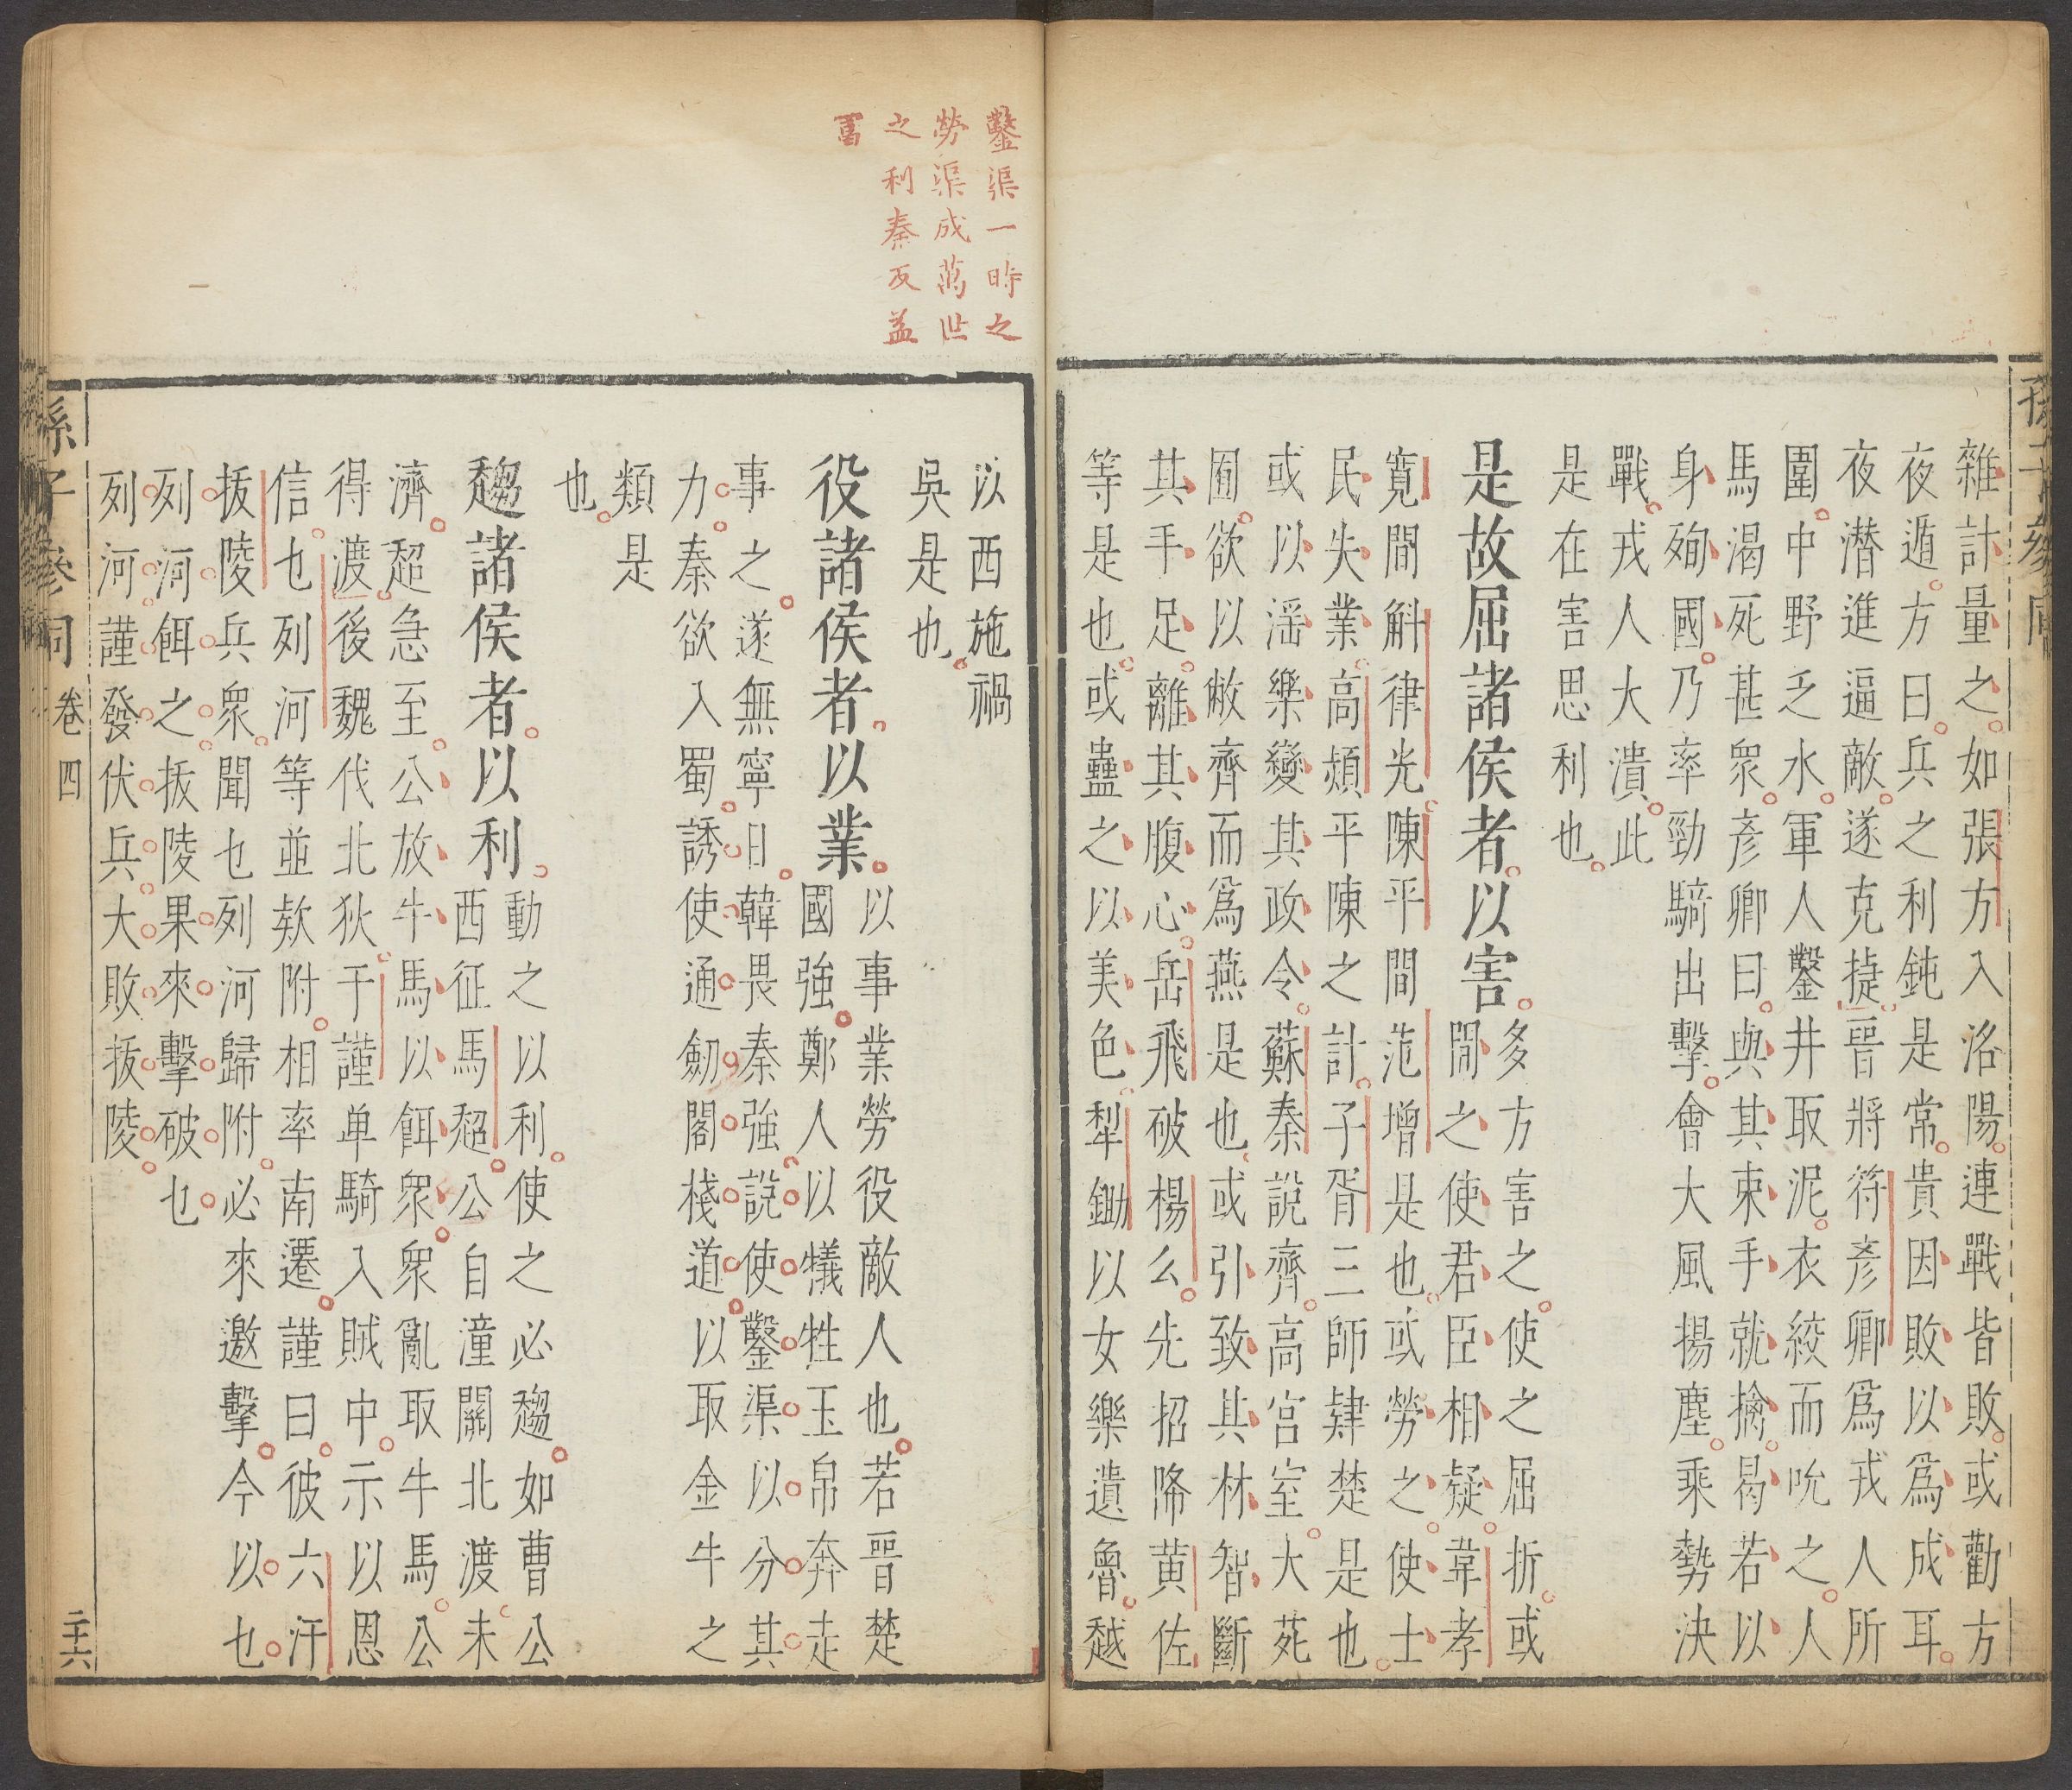 雜計量之如張方入洛陽連戰皆敗或勸方
夜遁方曰兵之利鈍是常貴因敗以爲成耳
夜潜進逼敵遂克捷晉將符彥卿爲戎人所
圍中野乏水軍人鑿井取泥衣絞而吮之人
馬渴死甚衆彥卿曰與其束手就擒曷若以
身殉國乃率勁騎出擊會大風揚塵乘勢決
戰戎人大潰此
是在害思利也
是故屈諸侯者以害
多方害之使之屈折或
間之使君臣相疑韋孝
寬間斛律光陳平間范增是也或勞之使士
民失業高熲平陳之計子胥三師肄楚是也
或以滛樂變其政令蘇秦說齊高宮室大苑
囿欲以敝齊而爲燕是也或引致其林智斷
其手足離其腹心岳飛破楊么先招降黄佐
等是也或蠱之以美色犁鋤以女樂遺魯越
鑿渠一時之
勞渠成萬世
之利秦反益
富
以西施禍
吳是也
役諸侯者以業
以事業勞役敵人也若晉楚
國強鄭人以犧牲玉帛奔走
事之遂無寧日韓畏秦強說使鑿渠以分其
力秦欲入蜀誘使通劒閣棧道以取金牛之
類是
也
趨諸侯者以利
動之以利使之必趨如曹公
西征馬超公自潼關北渡未
濟超急至公放牛馬以餌衆衆亂取牛馬公
得渡後魏伐北狄于謹单騎入賊中示以恩
信也列河等並欵附相率南遷謹曰彼六汗
拔陵兵衆聞乜列河歸附必來邀擊今以乜
列河餌之拔陵果來擊破乜
列河謹發伏兵大敗拔陵
孫子參同
卷四
二十六